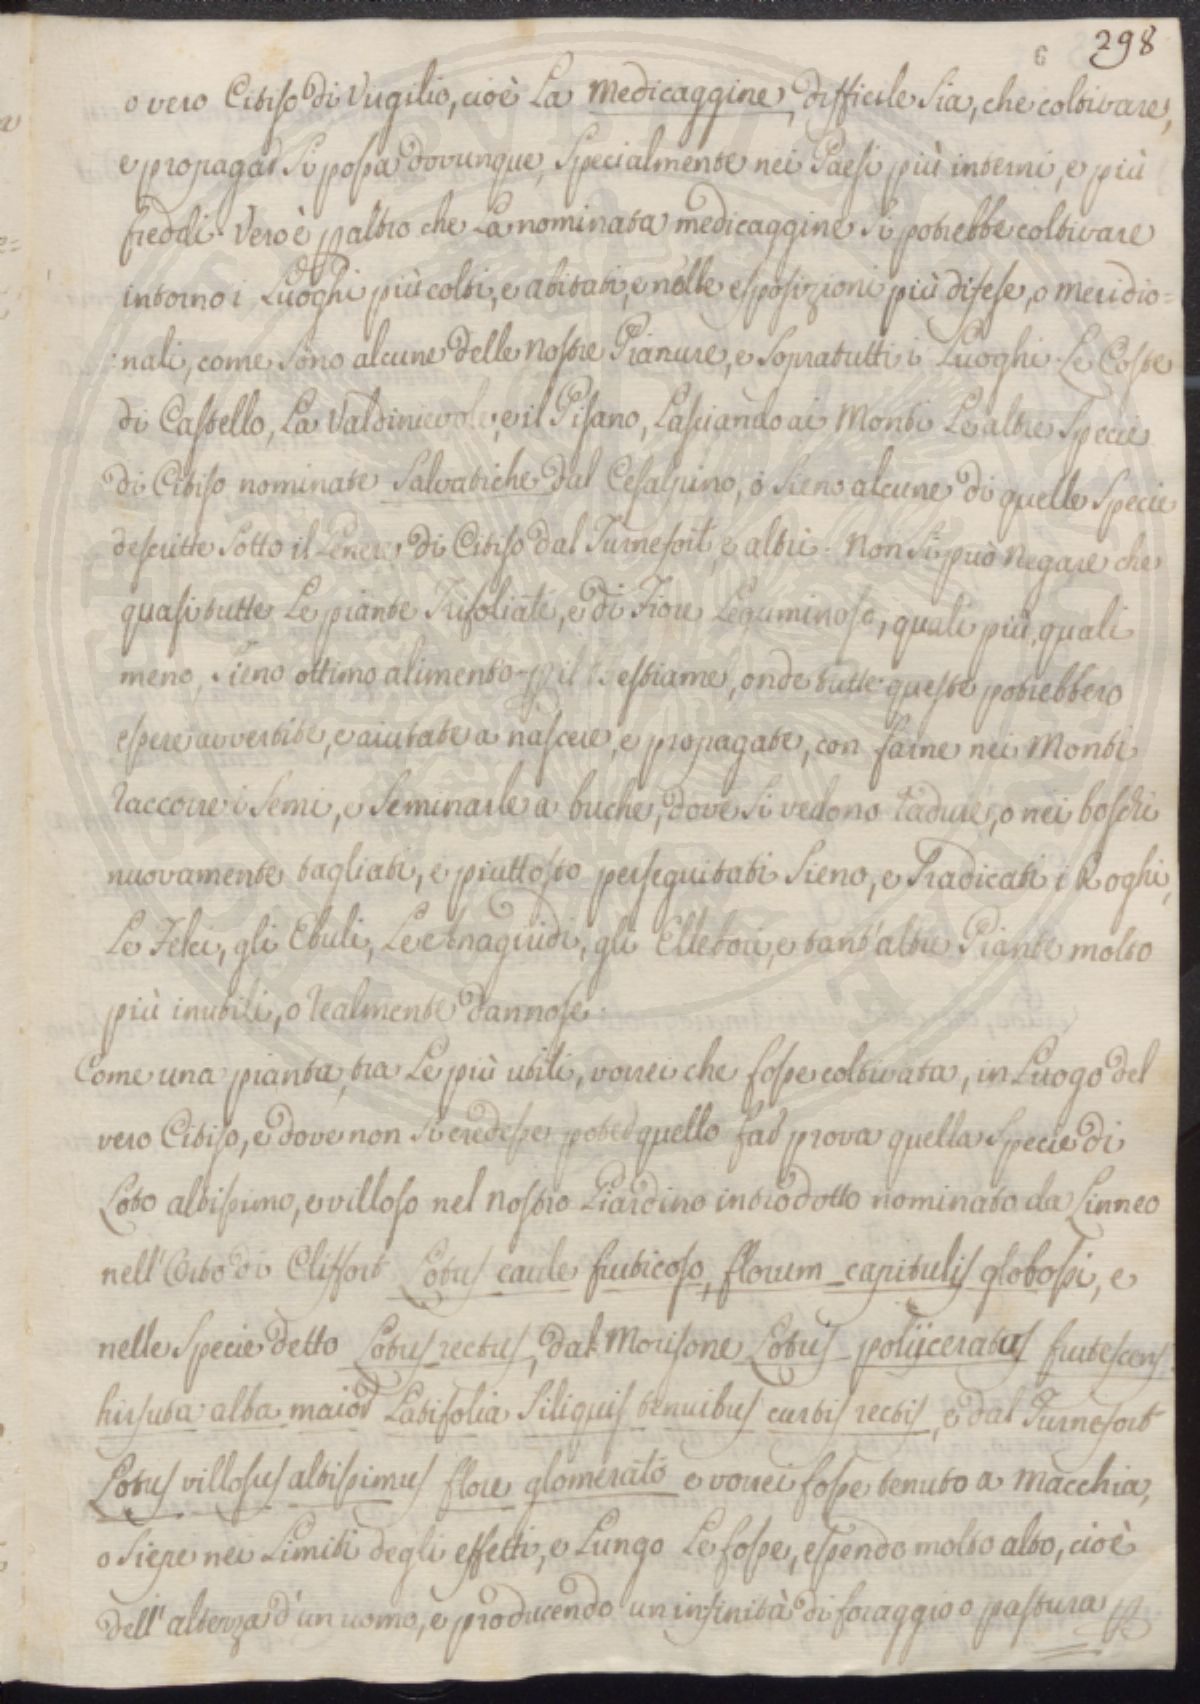 6 298
o vero Citiso di Virgilio, cioè La Medicaggine, difficile sia, che coltivare,
e propagar si possa dovunque, Specialmente nei Paesi più interni, e più
freddi. Vero è p altro che La nominata medicaggine si potrebbe coltivare
intorno i Luoghi più colti, e abitati, e nelle esposizioni più difese, o meridio=
:nali, come sono alcune delle nostre Pianure, e sopratutti i Luoghi Le Coste
di Castello, La Valdinievole, e il Pisano, Lasciando ai Monti Le altre Specie
di Citiso nominate Salvatiche dal Cesalpino, o sieno alcune di quelle Specie
descritte sotto il Genere di Citiso dal Turnefort, e altri. Non si può negare che
quasi tutte Le piante Trifoliate, e di Fiore Leguminoso, quali più, quali
meno, sieno ottimo alimento p il Bestiame, onde tutte queste potrebbero
essere avvertite, e aiutate a nascere, e propagate, con farne nei Monti
raccorre i Semi, e Seminarle a buche, dove si vedono radure, o nei boschi
nuovamente tagliati, e piuttosto perseguitati sieno, e sradicati i Roghi,
Le Felci, gli Ebuli, Le Ernagriudi, gli Ellebori, e tant'altre Piante molto
più inutili, o realmente dannose.
Come una pianta, tra Le più utili, vorrei che fosse coltivata, in Luogo del
vero Citiso, e dove non si credesse poter quello far prova quella Specie di
Loto altissimo, e villoso nel nostro Giardino introdotto nominato da Linneo
nell'Orto di Cliffort Lotus caule fruticoso, florum capitulis globosi, e
nelle Specie detto Lotus rectus, dal Morisone Lotus polyceratus frutescens
hirsuta alba maior Latifolia Siliquis tenuibus curtis rectis, e dal Turnefort
Lotus villosus altissimus flore glomerato e vorrei fosse tenuto a Macchia,
o Siepe nei Limiti degli effetti, e Lungo Le fosse, essendo molto alto, cioè
dell'altezza d'un uomo, e producendo un infinità di foraggio o pastura p